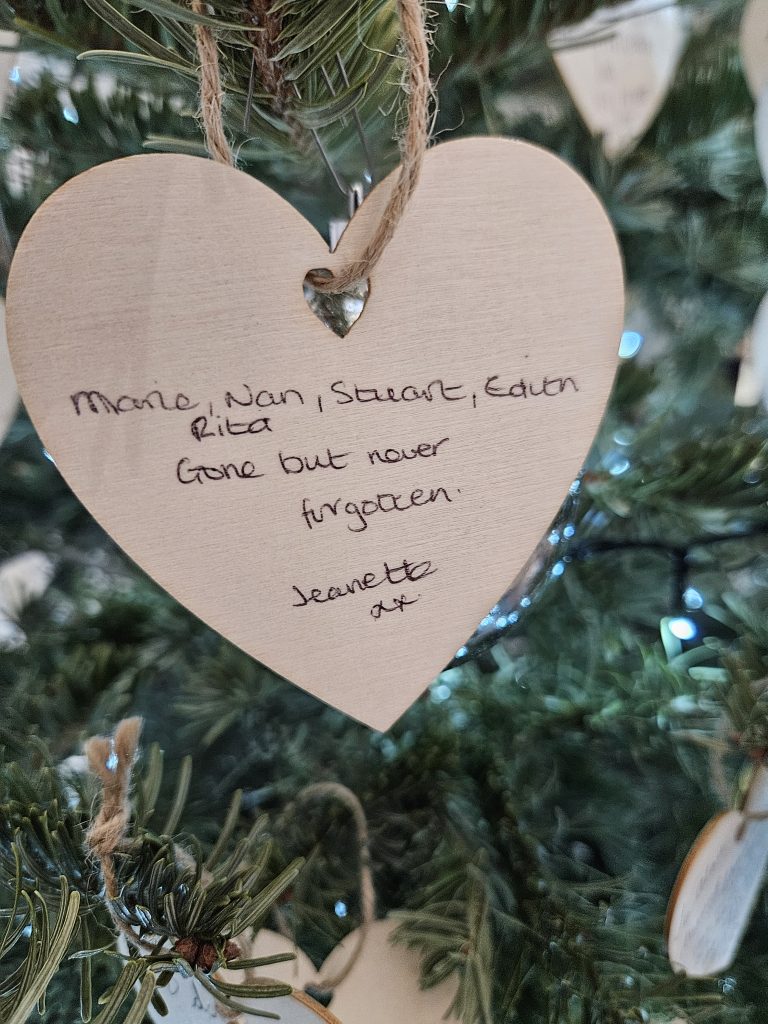 Marie, Nan, Stuart, Edith
Rita
Gone but never
forgotten.
Jeanette
xx